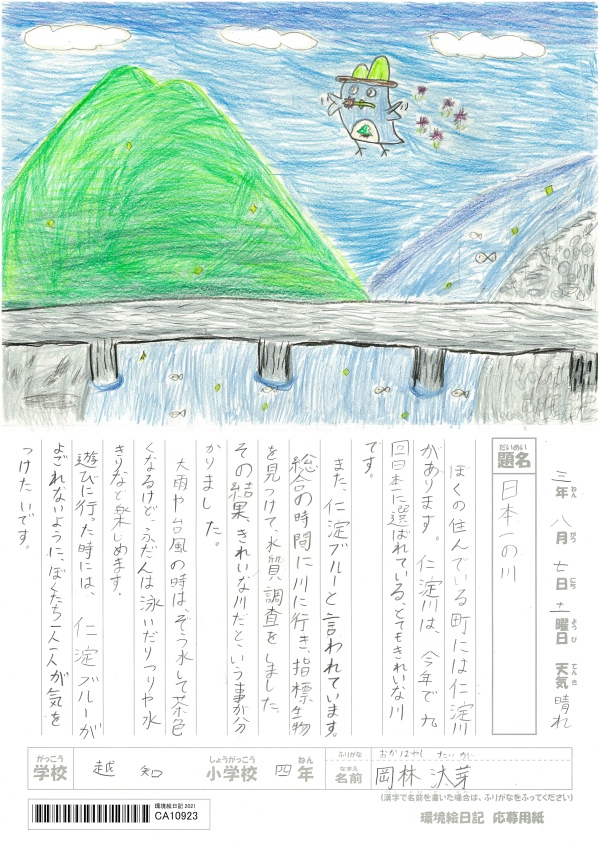 三年 八月 七日 土曜日 天気 晴れ
ねん がつ にち ようび てんき
だいめい
題名
日本一の川
ぼくの住んでいる町には仁淀川
があります。仁淀川は、今年で九
回日本に選ばれている、とてもきれいな川
です。
また、仁淀ブルーと言われています。
総合の時間に川に行き、指標生物
を見つけて、水質調査をしました。
その結果、きれいな川だという事が分
かりました。
大雨や台風の時は、ぞう水して茶色
くなるけど、ふだんは泳いだりつりや水
きりなど楽しめます。
遊びに行った時には、仁淀ブルーが
よごれないように、ぼくたち一人一人が気を
つけたいです。
がっこう しょうがっこう ねん
学校 越知 小学校 四年
ふりがな おかばやし たいが
なまえ
名前 岡林 汰芽
(漢字で名前を書いた場合は、ふりがなをふってください)
環境絵日記 2021
CA10923
環境絵日記 応募用紙